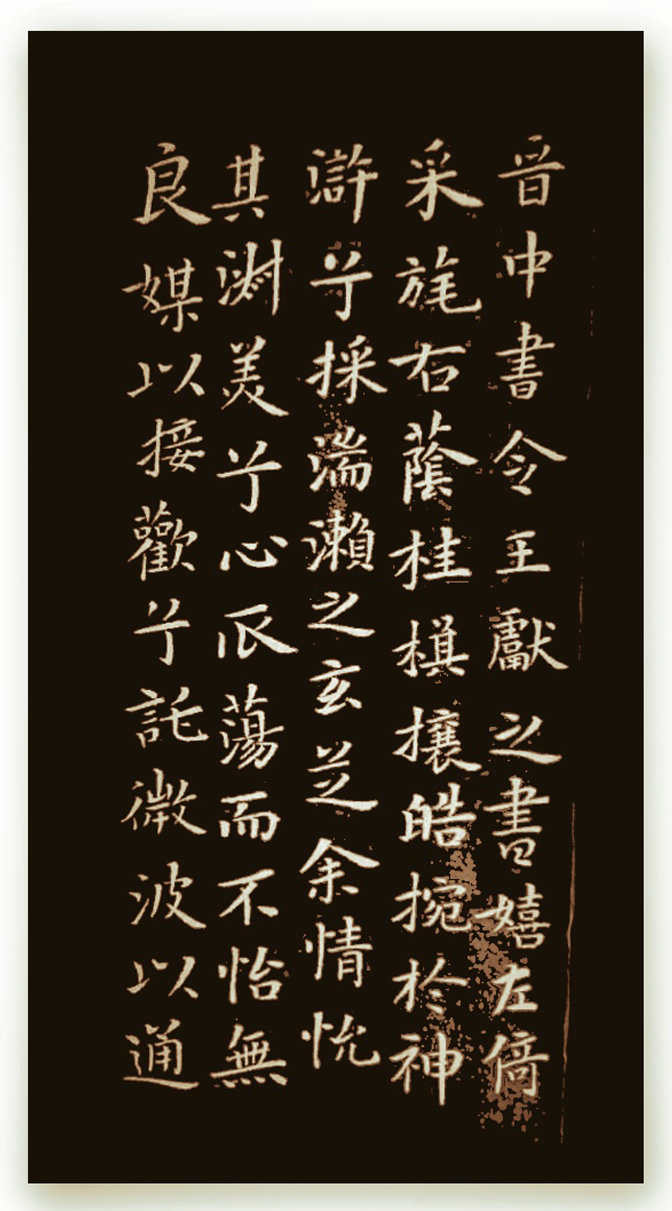 晉中書令王獻之書嬉左倚
采旄右蔭桂旗攘皓捥於神
滸兮採湍瀨之玄芝余情悅
其淑美兮心振蕩而不怡無
良媒以接歡兮託微波以通